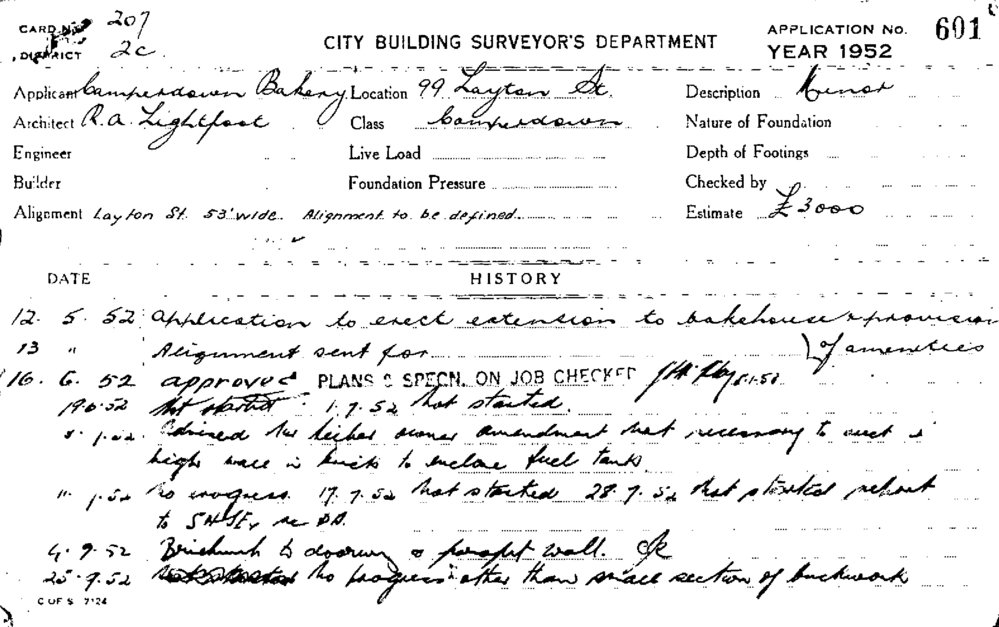 CARD No 207
DISTRICT 2C.
CITY BUILDING SURVEYOR'S DEPARTMENT
APPLICATION No. 601
YEAR 1952
Applicant Camperdown Bakery Location 99 Layton St. Description Minor
Architect R.A. Lightfoot Class Camperdown Nature of Foundation
Engineer Live Load Depth of Footings
Builder Foundation Pressure Checked by
Alignment Layton St. 53' wide. Alignment to be defined. Estimate £3000
DATE HISTORY
12. 5. 52 Application to erect extension to bakehouse & provision
13 " Alignment sent for of amenities
16. 6. 52 approved PLANS & SPECN. ON JOB CHECKED
19.6.52 Not started 1.7.52 Not started.
Advised owner amendment not necessary to erect
high wall in brick to enclose fuel tank.
No progress. 17.7.52 Not started 28.7.52 Not started
to
4.9.52 Brickwork to doorway & parapet wall. OK
25.9.52 No progress other than small section of brickwork
C OF S 7124